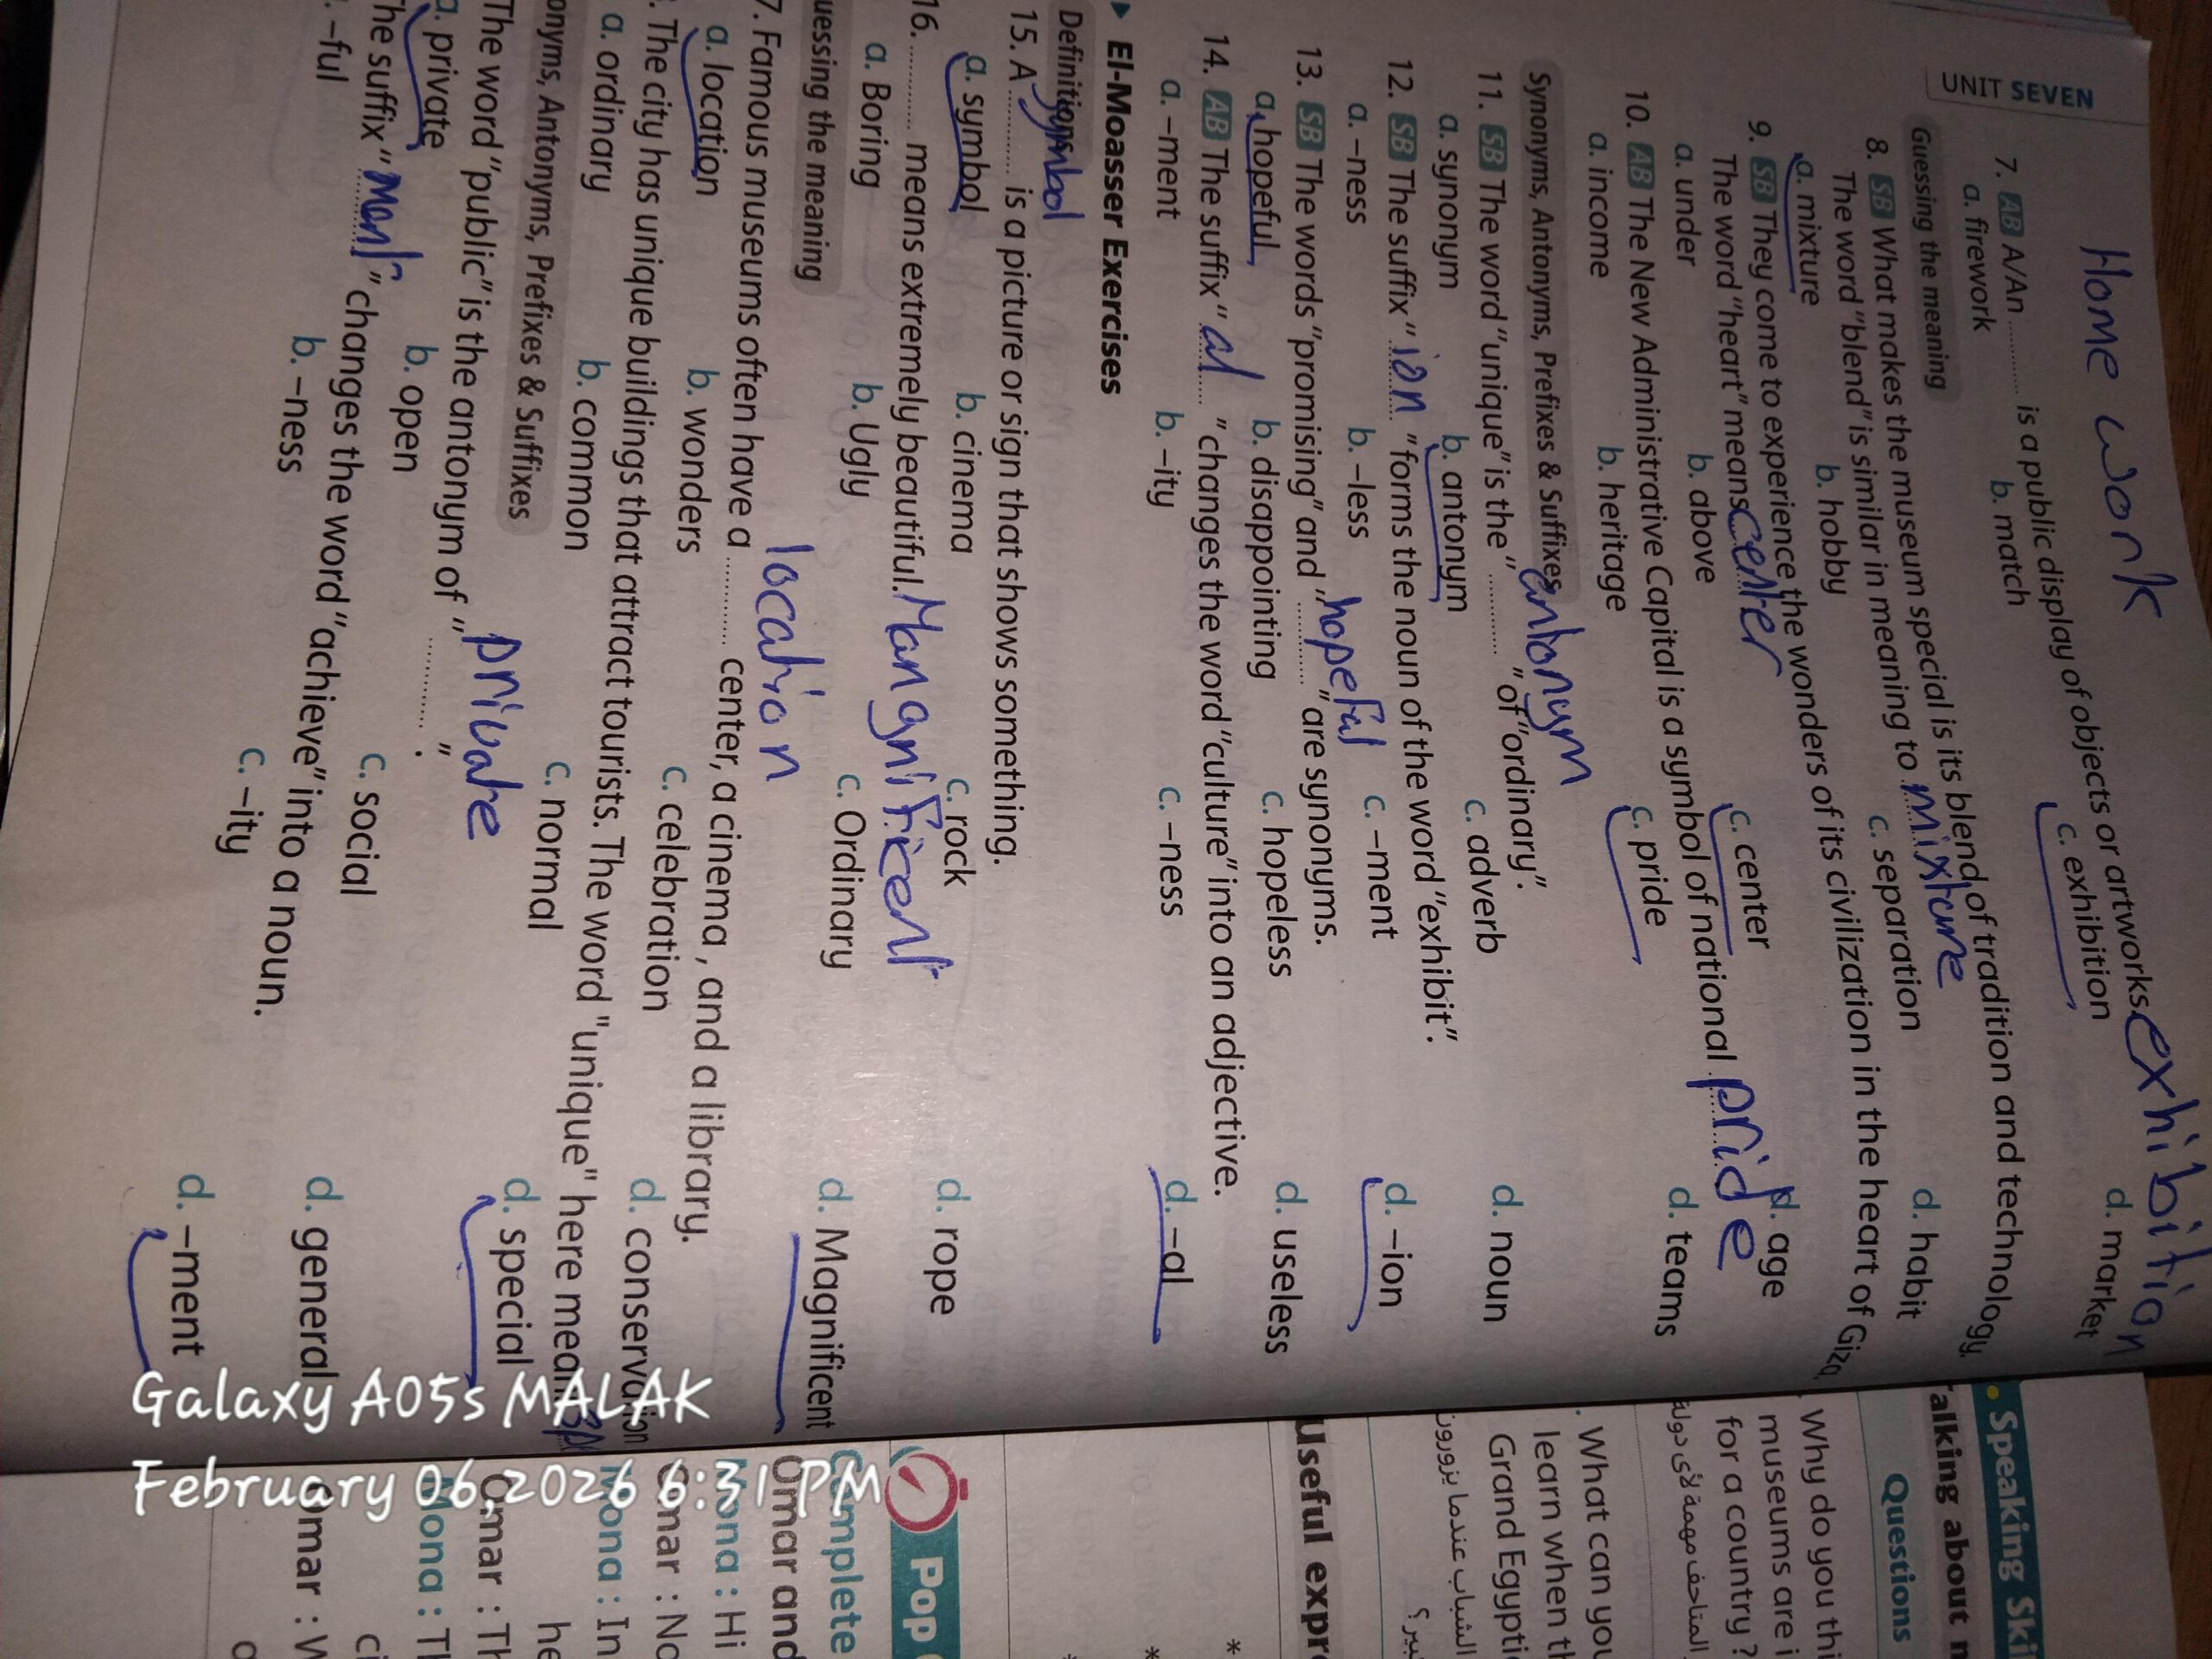 UNIT SEVEN
Home work
7. AB A/An .......... is a public display of objects or artworks exhibition
a. firework b. match c. exhibition d. market
Guessing the meaning
8. SB What makes the museum special is its blend of tradition and technology.
The word "blend" is similar in meaning to mixture
a. mixture b. hobby c. separation d. habit
9. SB They come to experience the wonders of its civilization in the heart of Giza.
The word "heart" means center
a. under b. above c. center d. age
10. AB The New Administrative Capital is a symbol of national pride
a. income b. heritage c. pride d. teams
Synonyms, Antonyms, Prefixes & Suffixes
antonym
11. SB The word "unique" is the ".........." of "ordinary".
a. synonym b. antonym c. adverb d. noun
12. SB The suffix "ion" forms the noun of the word "exhibit".
a. -ness b. -less c. -ment d. -ion
13. SB The words "promising" and "hopeful" are synonyms.
a. hopeful b. disappointing c. hopeless d. useless
14. AB The suffix "al" changes the word "culture" into an adjective.
a. -ment b. -ity c. -ness d. -al
El-Moasser Exercises
Definitions
symbol
15. A .......... is a picture or sign that shows something.
a. symbol b. cinema c. rock d. rope
16. .......... means extremely beautiful. Mangnificent
a. Boring b. Ugly c. Ordinary d. Magnificent
uessing the meaning
location
7. Famous museums often have a .......... center, a cinema , and a library.
a. location b. wonders c. celebration d. conservation
. The city has unique buildings that attract tourists. The word "unique" here mean
a. ordinary b. common c. normal d. special
onyms, Antonyms, Prefixes & Suffixes
The word "public" is the antonym of ".......... ."
private
a. private b. open c. social d. general
he suffix "ment" changes the word "achieve" into a noun.
. -ful b. -ness c. -ity d. -ment
Speaking Ski
alking about m
Questions
. Why do you thi
museums are i
for a country ?
المتاحف مهمة لأى دولة
. What can you
learn when th
Grand Egypti
الشباب عندما يزورون
بير ؟
Useful expr
*
*
Pop
Complete
Omar and
Mona : Hi
Omar : No
Mona : In
Omar : Th
he
Mona : Th
ci
Omar : W
Galaxy A05s MALAK
February 06,2026 6:31 PM